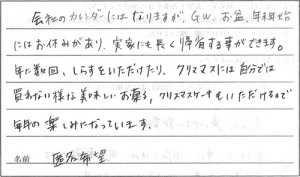 会社のカレンダーにはなりますが、GW、お盆、年末年始
にはお休みがあり、実家にも長く帰省する事ができます。
年に数回、しらすをいただけたり、クリスマスには自分では
買わない様な美味しいお菓子、クリスマスケーキもいただけるので
毎年の楽しみになっています。
名前 匿名希望